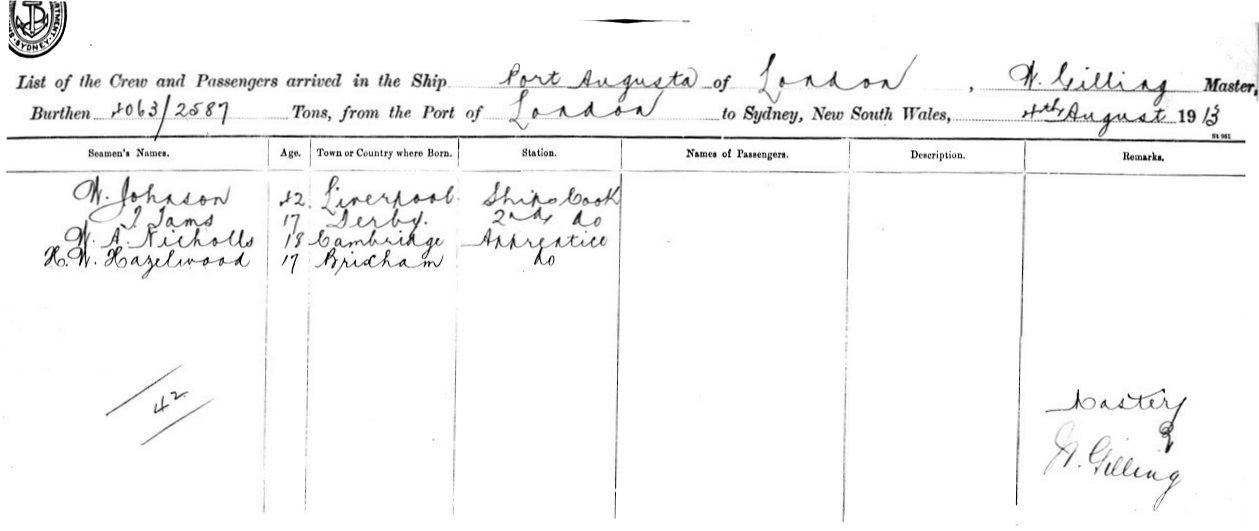 SYDNEY
List of the Crew and Passengers arrived in the Ship Port Augusta of London, W. Gilling Master,
Burthen 4063/2587 Tons, from the Port of London to Sydney, New South Wales, 4th August 1913
St 961
Seamen's Names. Age. Town or Country where Born. Station. Names of Passengers. Description. Remarks.
W. Johnson 42 Liverpool. Ships Cook
J. Jams 17 Derby. 2nd do
W. A. Nicholls 18 Cambridge Apprentice
H. W. Hazelwood 17 Brixham do
42
Master
W. Gilling